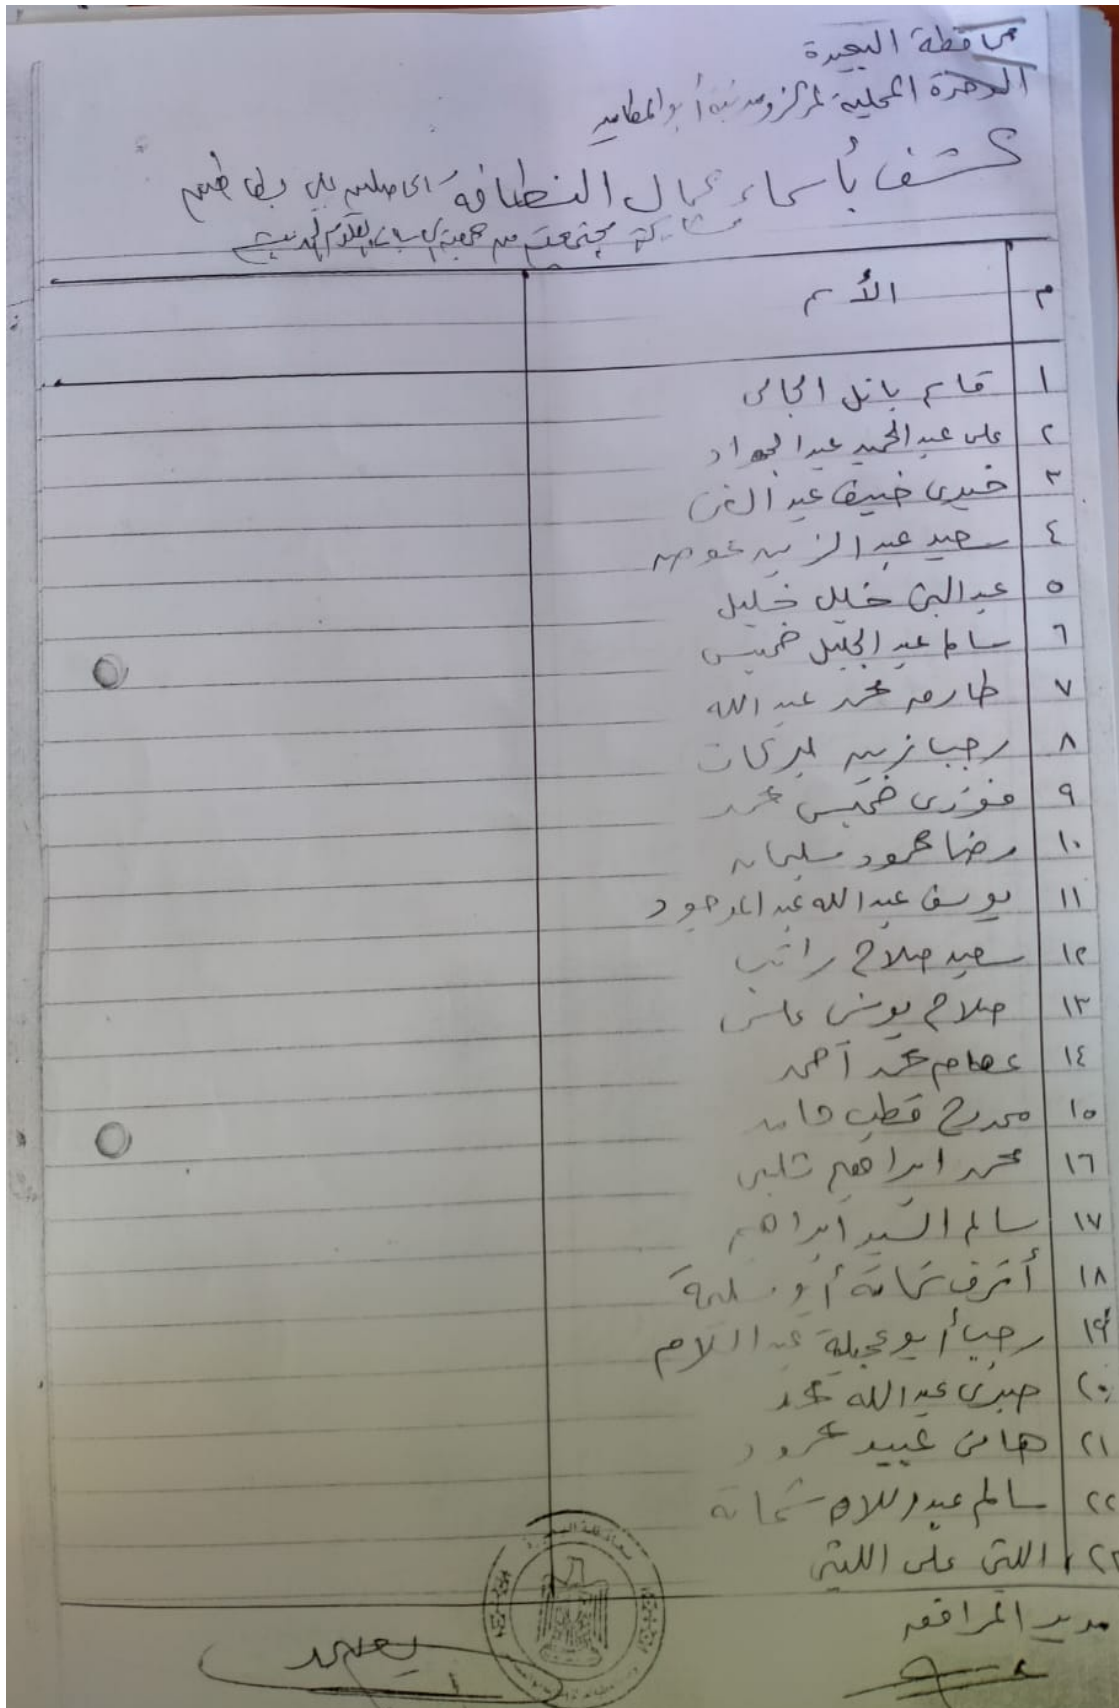 محافظة البحيرة
الوحدة المحلية لمركز ومدينة أبو المطامير
كشف بأسماء عمال النظافة الحاصلين على
مشاركة مجتمعية من جمعية
م الأسم
١ قاسم الجالى
٢ على عبد الحميد عبد الجواد
٣ خيرى ضيف عبد الغنى
٤ سعيد عبد الزين عوض
٥ عبد النبى خليل خليل
٦ سالم عبد الجليل خميس
٧ طارق محمد عبد الله
٨ رجب بركات
٩ فوزى خميس محمد
١٠ رضا محمود سليمان
١١ يوسف عبد الله عبد الموجود
١٢ سعيد صلاح راتب
١٣ صلاح يونس
١٤ عصام محمد أحمد
١٥ ممدوح قطب حامد
١٦ محمد ابراهيم شلبى
١٧ سالم السيد ابراهيم
١٨ أشرف شحاته أبو سليمة
١٩ رجب أبو عجيلة عبد السلام
٢٠ صبرى عبد الله محمد
٢١ هانى عبيد محمود
٢٢ سالم عبد اللاه شحاته
٢٣ الليثى على الليثى
مدير المرافق
يعتمد